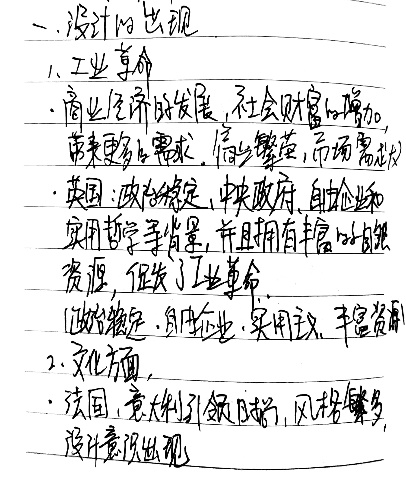 一、设计的出现
1、工业革命
·商业经济的发展,社会财富的增加,
带来更多的需求,商业繁荣,市场需求大
·英国:政治稳定,中央政府、自由企业和
实用哲学等背景,并且拥有丰富的自然
资源,促发了工业革命.
(政治稳定·自由企业·实用主义、丰富资源)
2、文化方面,
·法国、意大利引领时尚,风格繁多,
设计意识出现